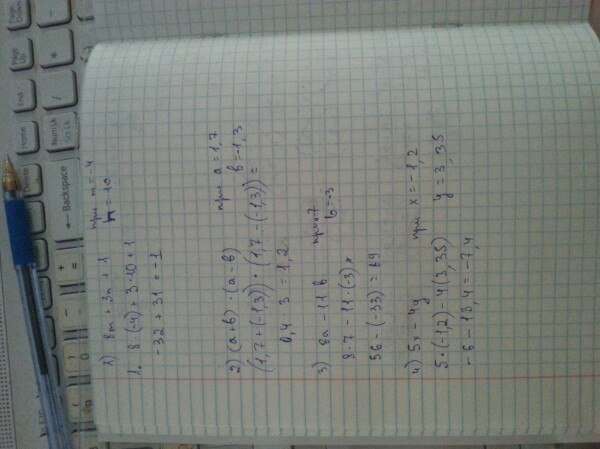 1) 8m + 3n + 1 при m = -4
n = 10
1. 8(-4) + 3·10 + 1
-32 + 31 = -1
2) (a+b)·(a-b) при a = 1,7
b = -1,3
(1,7 + (-1,3)) · (1,7 - (-1,3)) =
0,4 3 = 1,2
3) 8a - 11b
b = -3
8·7 - 11·(-3)
56 - (-33) = 89
4) 5x - 4y при x = -1,2
y = 3,35
5·(-1,2) - 4(3,35)
-6 - 13,4 = -7,4
Page Up
Page Down
End
Home
NumLk
← Backspace